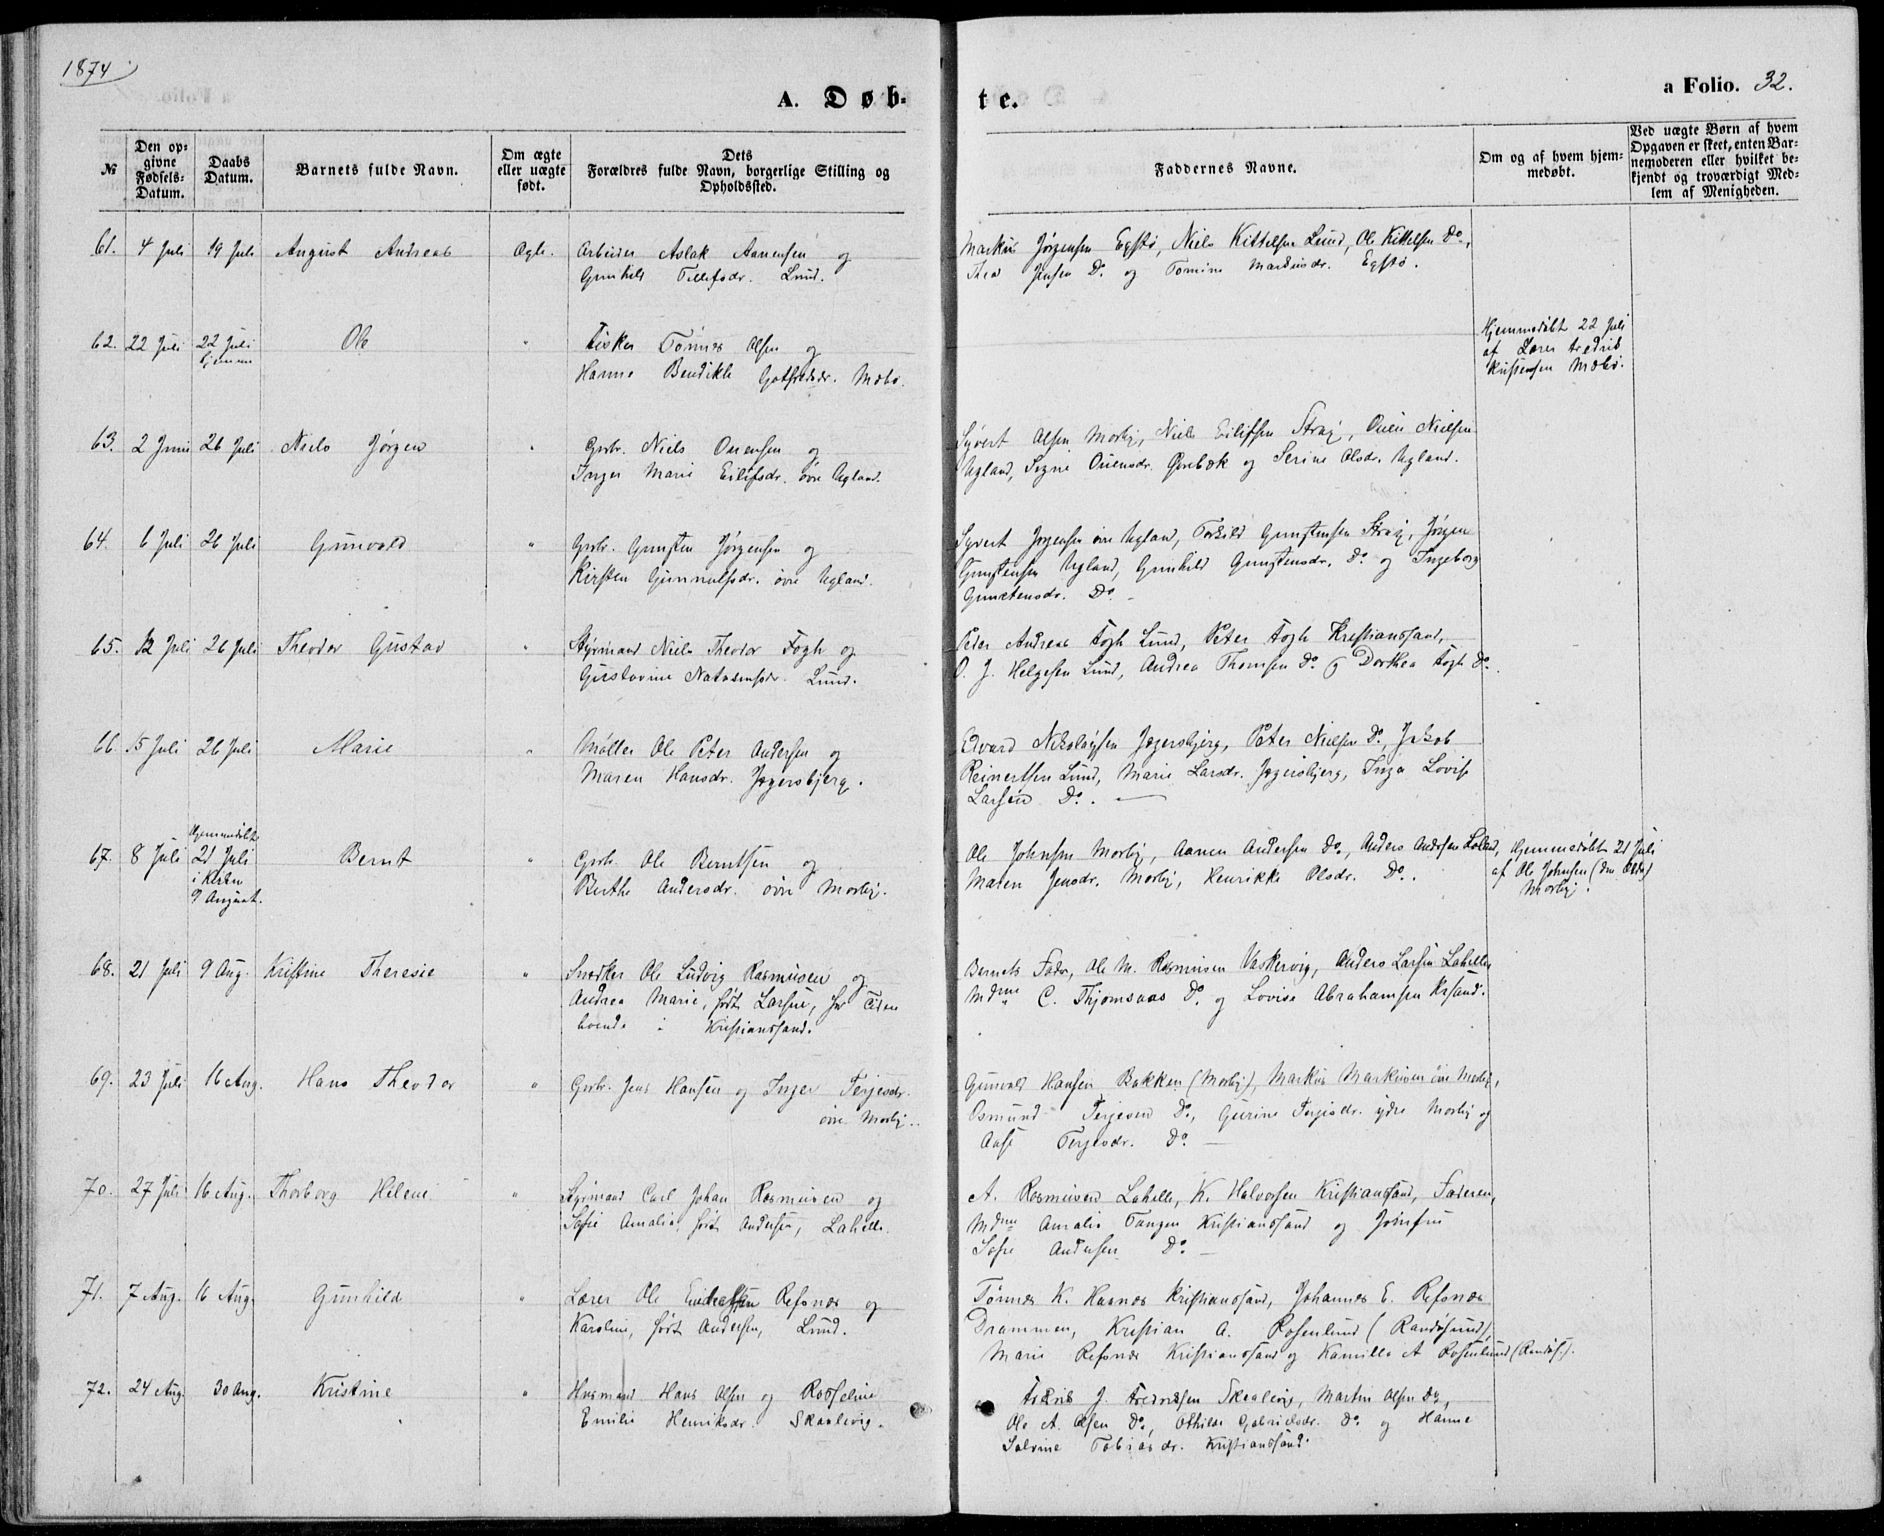 1874
A. Døb-
te.
a Folio. 32.
№
Den op-
givne
Fødsels-
Datum.
Daabs
Datum.
Barnets fulde Navn.
Om ægte
eller uægte
født.
Dets
Forældres fulde Navn, borgerlige Stilling og
Opholdssted.
Faddernes Navne.
Om og af hvem hjem-
medøbt.
Ved uægte Børn af hvem
Opgaven er skeet, enten Bar-
nemoderen eller hvilket be-
kjendt og troværdigt Med-
lem af Menigheden.
61. 4 Juli 19 Juli August Andreas Ægte. Arbeider Aslak Aanensen og
Gunhild Tellefsdr. Lund.
Markus Jørgensen Egstø, Niels Kittelsen Lund, Ole Kittelsen Do,
Thea Jensen Do. og Tomine Markusdr. Egstø.
62. 22 Juli 22 Juli Ole " Fisker Tønnes Olsen og
hjemme
Hanne Bendikte Gotfredsdr. Mæbø.
Hjemmedøbt 22 Juli
af Lærer Fredrik
Kristensen Mæbø.
63. 2 Juni 26 Juli Niels Jørgen " Grbr. Niels Ouensen og
Inger Marie Eilifsdr. øvre Ugland.
Syvert Olsen Mosby, Niels Eilifsen Stray, Ouen Nielsen
Ugland, Signe Ouensdr. Grebæk og Serine Olsdr. Ugland.
64. 6 Juli 26 Juli Gunvald " Grbr. Gunsten Jørgensen og
Kirsten Gunnulfsdr. øvre Ugland.
Syvert Jørgensen øvre Ugland, Torkild Gunstensen Stray, Jørgen
Gunstensen Ugland, Gunhild Gunstensdr. Do. og Ingeborg
Gunstensdr. Do. -
65. 12 Juli 26 Juli Theodor Gustav " Styrmand Niels Theodor Fogh og
Gustavine Lund.
Peder Andreas Fogh Lund, Peter Fogh Kristianssand,
O. J. Helgesen Lund, Andrea Thomsen Do. og Dorthea Fogh Do.
66. 15 Juli 26 Juli Marie " Møller Ole Peter Andersen og
Maren Hansdr. Jægersbjerg.
Edvard Nikolaysen Jægersbjerg, Peter Nielsen Do., Jakob
Reinertsen Lund, Marie Larsdr. Jægersbjerg, Inga Lovise
Larsen Do. —
Hjemmedøbt
67. 8 Juli 21 Juli Bernt " Grbr. Ole Berntsen og
i Kirken
9 August.
Berthe Andersdr. øvre Mosby.
Ole Johnsen Mosby, Aanen Andersen Do., Anders Andersen
Maren Jensdr. Mosby, Henrikke Olsdr. Do.
Hjemmedøbt 21 Juli
af Ole Johnsen
Mosby.
68. 21 Juli 9 Aug. Kristine Theresie " Snedker Ole Ludvig Rasmusen og
Andrea Marie, født Larsen, for Tiden
boende i Kristianssand.
Barnets Fader, Ole M. Rasmusen Vaskervig, Anders Larsen Lahelle,
Mdme C. Thjomsaas Do. og Lovise Abrahamsen Krsand.
69. 23 Juli 16 Aug. Hans Theodor " Grbr. Jens Hansen og Inger Terjesdr.
øvre Mosby.
Gunvald Hansen Bakken (Mosby), Markus Markusen øvre Mosby,
Osmund Terjesen Do., Gurine Terjesdr. ydre Mosby og
Aase Terjesdr. Do. —
70. 27 Juli 16 Aug. Thorborg Helene " Styrmand Carl Johan Rasmusen og
Sofie Amalie, født Andersen, Lahelle.
A. Rasmusen Lahelle, K. Halvorsen Kristianssand, Faderen,
Mdme Amalie Tangen Kristianssand og Jomfru
Sofie Andersen Do. —
71. 7 Aug. 16 Aug. Gunhild " Lærer Ole Refsnæs og
Karoline, født Andersen, Lund.
Tønnes K. Haanes Kristianssand, Johannes E. Refsnæs
Drammen, Kristian A. Rosenlund (Randøsund),
Marie Refsnæs Kristianssand og Kamilla A Rosenlund (Randøs.).
72. 24 Aug. 30 Aug. Kristine " Husmand Hans Olsen og Roseline
Emilie Henriksdr. Skaalevig.
Fredrik J. Fredriksen Skaalevig, Martin Olsen Do.,
Ole A. Olsen Do., Othilde Gabrielsdr. Do. og Hanne
Salvine Tobiasdr. Kristianssand.